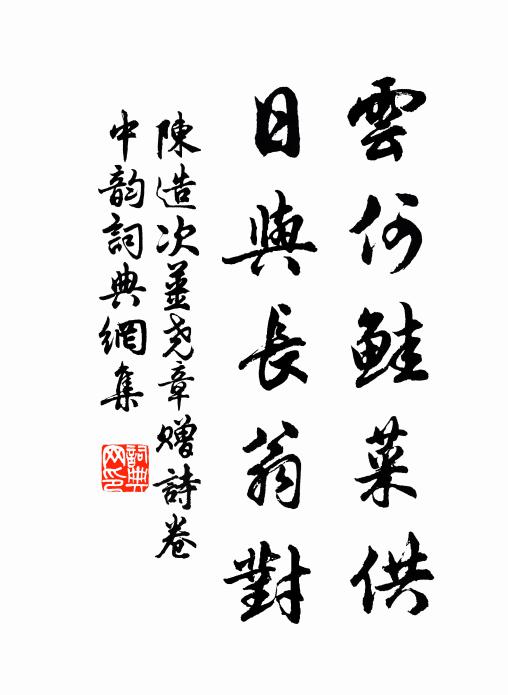 雲何鮭菜供
日與長翁對
陳造次姜尧章赠詩卷
中韵詞典網集
詞典
网印